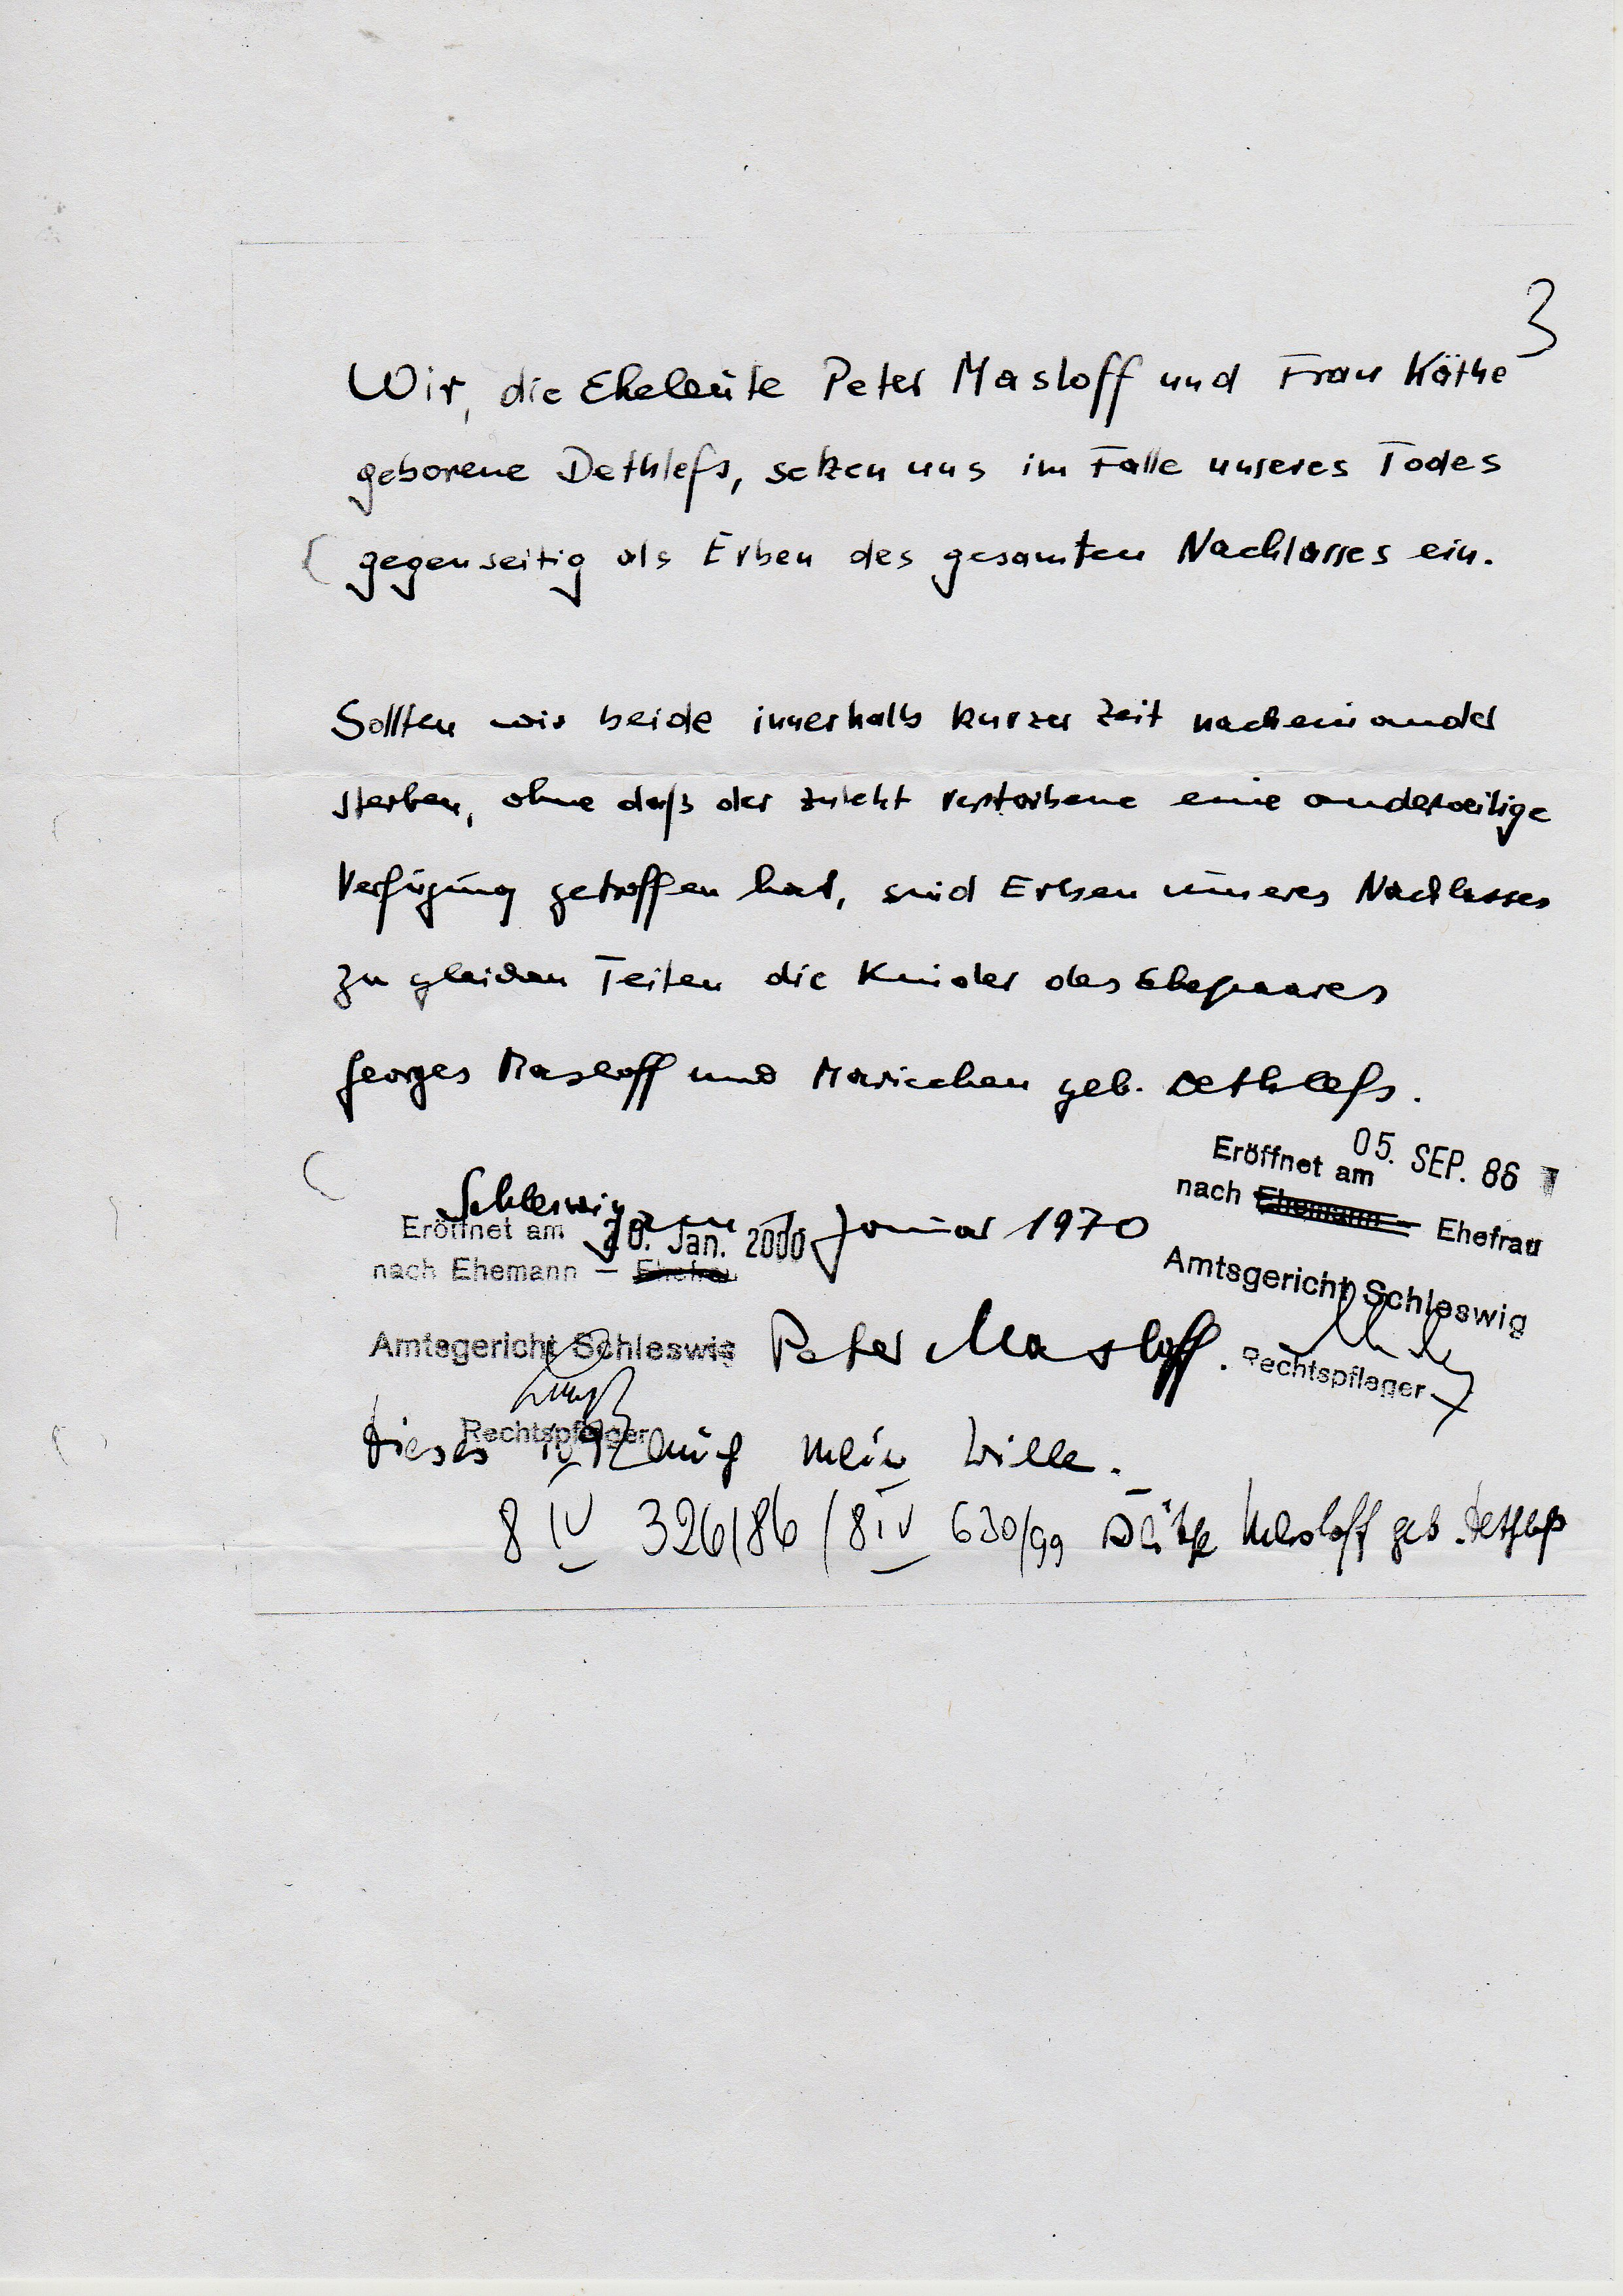 3
Wir, die Eheleute Peter Masloff und Frau Käthe
geborene Dethlefs, setzen uns im Falle unseres Todes
gegenseitig als Erben des gesamten Nachlasses ein.
Sollten wir beide innerhalb kurzer Zeit nacheinander
sterben, ohne daß der zuletzt verstorbene eine anderweitige
Verfügung getroffen hat, sind Erben unseres Nachlasses
zu gleichen Teilen die Kinder des Ehepaares
Georges Masloff und Mariechen geb. Dethlefs.
Eröffnet am 05. SEP. 86
nach Ehemann – Ehefrau
Amtsgericht Schleswig
Rechtspfleger
Schleswig, im Januar 1970
Eröffnet am 20. Jan. 2000
nach Ehemann – Ehefrau
Amtsgericht Schleswig
Rechtspfleger
Peter Masloff.
Dieses ist auch mein Wille.
8 IV 326/86 / 8 IV 630/99 Käthe Masloff geb. Dethlefs